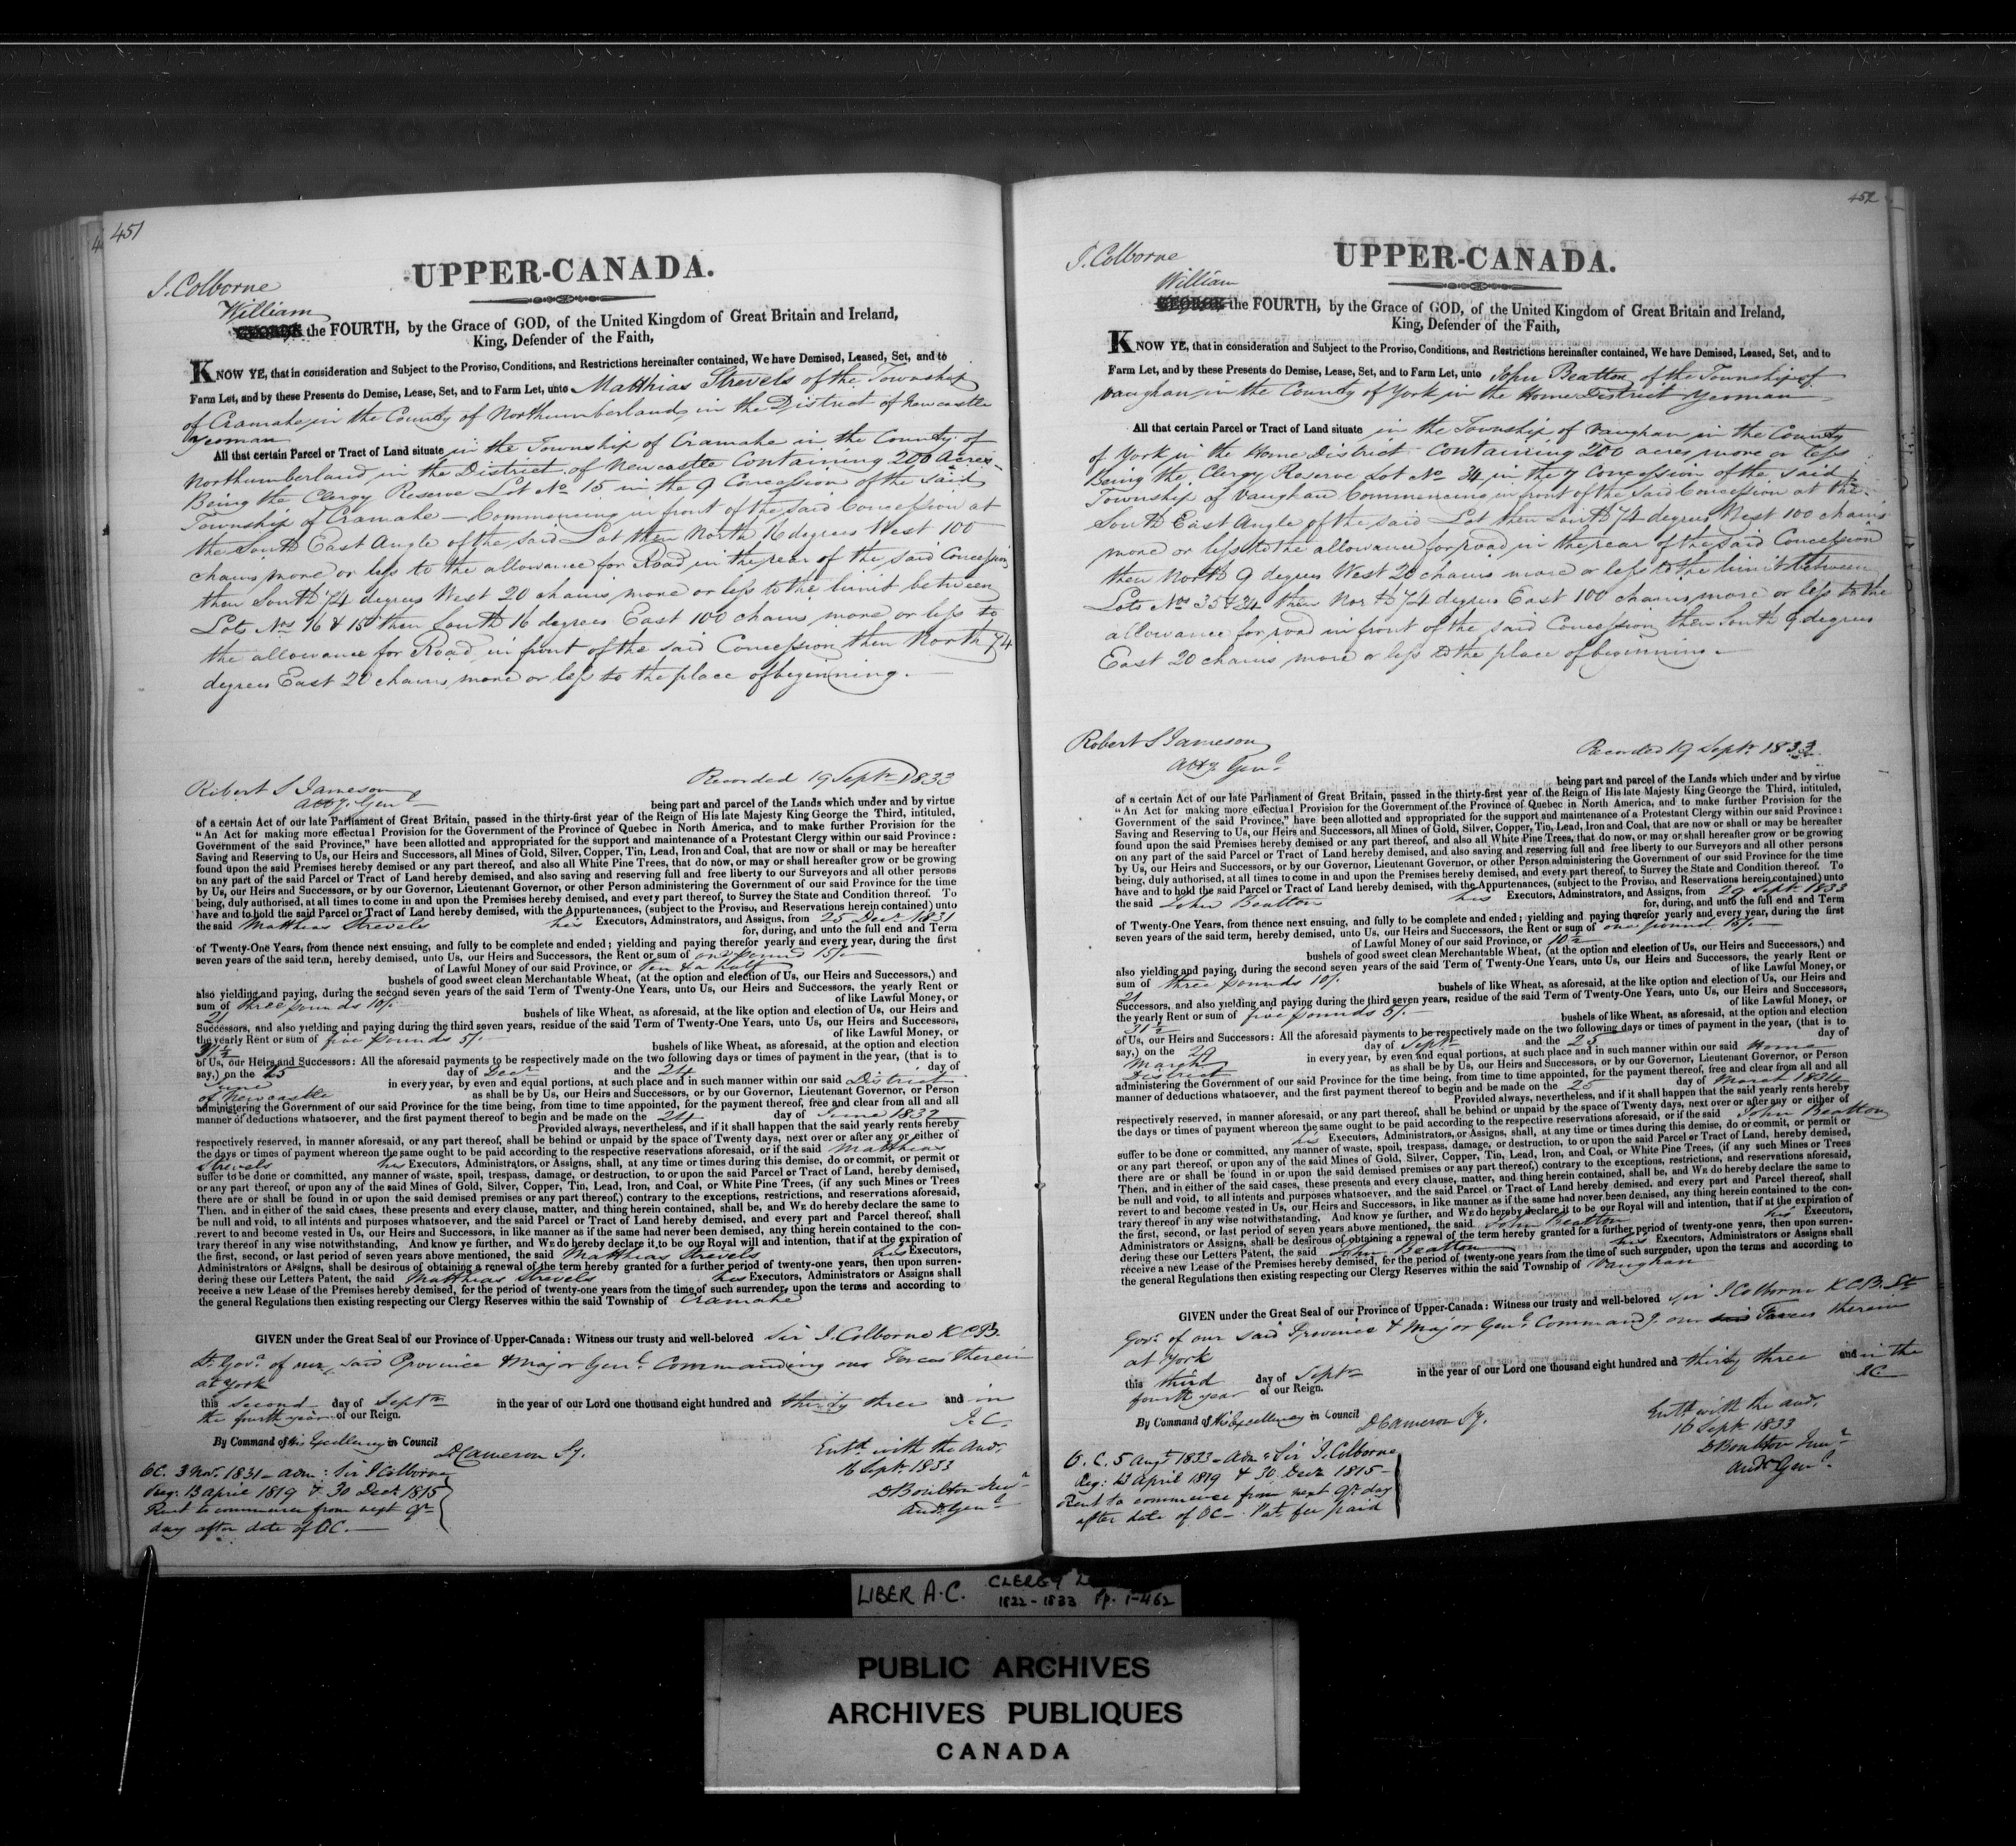 451
UPPER-CANADA.
J. Colborne
William
GEORGE the FOURTH, by the Grace of GOD, of the United Kingdom of Great Britain and Ireland,
King, Defender of the Faith,
KNOW YE, that in consideration and Subject to the Proviso, Conditions, and Restrictions hereinafter contained, We have Demised, Leased, Set, and to
Farm Let, and by these Presents do Demise, Lease, Set, and to Farm Let, unto Matthias Strevels of the Township
of Cramahe in the County of Northumberland, in the District of Newcastle
Yeoman
All that certain Parcel or Tract of Land situate in the Township of Cramahe in the County of
Northumberland in the District of Newcastle Containing 200 Acres
Being the Clergy Reserve Lot No 15 in the 9 Concession of the Said
Township of Cramahe — Commencing in front of the said Concession at
the South East Angle of the said Lot then North 16 degrees West 100
chains more or less to the allowance for Road in the rear of the said Concession
then South 74 degrees West 20 chains more or less to the limit between
Lots Nos 16 & 15 then South 16 degrees East 100 chains more or less to
the allowance for Road in front of the said Concession then North 74
degrees East 20 chains more or less to the place of beginning.
Recorded 19 Septr 1833
Robert S Jameson
Atty. Genl
being part and parcel of the Lands which under and by virtue
of a certain Act of our late Parliament of Great Britain, passed in the thirty-first year of the Reign of His late Majesty King George the Third, intituled,
"An Act for making more effectual Provision for the Government of the Province of Quebec in North America, and to make further Provision for the
Government of the said Province," have been allotted and appropriated for the support and maintenance of a Protestant Clergy within our said Province:
Saving and Reserving to Us, our Heirs and Successors, all Mines of Gold, Silver, Copper, Tin, Lead, Iron and Coal, that are now or shall or may be hereafter
found upon the said Premises hereby demised or any part thereof, and also all White Pine Trees, that do now, or may or shall hereafter grow or be growing
on any part of the said Parcel or Tract of Land hereby demised, and also saving and reserving full and free liberty to our Surveyors and all other persons
by Us, our Heirs and Successors, or by our Governor, Lieutenant Governor, or other Person administering the Government of our said Province for the time
being, duly authorised, at all times to come in and upon the Premises hereby demised, and every part thereof, to Survey the State and Condition thereof. To
have and to hold the said Parcel or Tract of Land hereby demised, with the Appurtenances, (subject to the Proviso, and Reservations herein contained) unto
the said Matthias Strevels his Executors, Adminstrators, and Assigns, from 25 Decr 1831
for, during, and unto the full end and Term
of Twenty-One Years, from thence next ensuing, and fully to be complete and ended; yielding and paying therefor yearly and every year, during the first
seven years of the said term, hereby demised, unto Us, our Heirs and Successors, the Rent or sum of one pound 15/-
of Lawful Money of our said Province, or ten & a half
bushels of good sweet clean Merchantable Wheat, (at the option and election of Us, our Heirs and Successors,) and
also yielding and paying, during the second seven years of the said Term of Twenty-One Years, unto Us, our Heirs and Successors, the yearly Rent or
sum of three pounds 10/- of like Lawful Money, or
21 bushels of like Wheat, as aforesaid, at the like option and election of Us, our Heirs and
Successors, and also yielding and paying during the third seven years, residue of the said Term of Twenty-One Years, unto Us, our Heirs and Successors,
the yearly Rent or sum of five pounds 5/- of like Lawful Money, or
31½ bushels of like Wheat, as aforesaid, at the option and election
of Us, our Heirs and Successors: All the aforesaid payments to be respectively made on the two following days or times of payment in the year, (that is to
say,) on the 25 day of Decr and the 24 day of
June in every year, by even and equal portions, at such place and in such manner within our said District
of Newcastle as shall be by Us, our Heirs and Successors, or by our Governor, Lieutenant Governor, or Person
administering the Government of our said Province for the time being, from time to time appointed, for the payment thereof, free and clear from all and all
manner of deductions whatsoever, and the first payment thereof to begin and be made on the 24 day of June 1832
Provided always, nevertheless, and if it shall happen that the said yearly rents hereby
respectively reserved, in manner aforesaid, or any part thereof, shall be behind or unpaid by the space of Twenty days, next over or after any or either of
the days or times of payment whereon the same ought to be paid according to the respective reservations aforesaid, or if the said Matthias
Strevels his Executors, Administrators, or Assigns, shall, at any time or times during this demise, do or commit, or permit or
suffer to be done or committed, any manner of waste, spoil, trespass, damage, or destruction, to or upon the said Parcel or Tract of Land, hereby demised,
or any part thereof, or upon any of the said Mines of Gold, Silver, Copper, Tin, Lead, Iron, and Coal, or White Pine Trees, (if any such Mines or Trees
there are or shall be found in or upon the said demised premises or any part thereof,) contrary to the exceptions, restrictions, and reservations aforesaid,
Then, and in either of the said cases, these presents and every clause, matter, and thing herein contained, shall be, and WE do hereby declare the same to
be null and void, to all intents and purposes whatsoever, and the said Parcel or Tract of Land hereby demised, and every part and Parcel thereof, shall
revert to and become vested in Us, our Heirs and Successors, in like manner as if the same had never been demised, any thing herein contained to the con-
trary thereof in any wise notwithstanding. And know ye further, and WE do hereby declare it to be our Royal will and intention, that if at the expiration of
the first, second, or last period of seven years above mentioned, the said Matthias Strevels his Executors,
Administrators or Assigns, shall be desirous of obtaining a renewal of the term hereby granted for a further period of twenty-one years, then upon surren-
dering these our Letters Patent, the said Matthias Strevels his Executors, Administrators or Assigns shall
receive a new Lease of the Premises hereby demised, for the period of twenty-one years from the time of such surrender, upon the terms and according to
the general Regulations then existing respecting our Clergy Reserves within the said Township of Cramahe
GIVEN under the Great Seal of our Province of Upper-Canada: Witness our trusty and well-beloved Sir J. Colborne K C B.
Lt. Govr. of our said Province & Major Genl Commanding our Forces therein
at York
this second day of Septr in the year of our Lord one thousand eight hundred and thirty three and in
the fourth year of our Reign. J.C.
By Command of His Excellency in Council
D Cameron Sy.
Entd. with the Audr.
16 Septr. 1833
D Boulton Junr
Audr Genl
OC. 3 Novr. 1831 — Adm: Sir J Colborne
Reg: 13 April 1819 & 30 Decr 1815
Rent to commence from next qr
day after date of OC. —
452
UPPER-CANADA.
J. Colborne
William
GEORGE the FOURTH, by the Grace of GOD, of the United Kingdom of Great Britain and Ireland,
King, Defender of the Faith,
KNOW YE, that in consideration and Subject to the Proviso, Conditions, and Restrictions hereinafter contained, We have Demised, Leased, Set, and to
Farm Let, and by these Presents do Demise, Lease, Set, and to Farm Let, unto John Beatton of the Township of
Vaughan in the County of York in the Home District Yeoman
All that certain Parcel or Tract of Land situate in the Township of Vaughan in the County
of York in the Home District Containing 200 acres more or less
Being the Clergy Reserve Lot No 34 in the 7 Concession of the said
Township of Vaughan Commencing in front of the said Concession at the
South East Angle of the said Lot then South 74 degrees West 100 chains
more or less to the allowance for road in the rear of the said Concession
then North 9 degrees West 20 chains more or less to the limit between
Lots Nos 35 & 34 then North 74 degrees East 100 chains more or less to the
allowance for road in front of the said Concession then South 9 degrees
East 20 chains more or less to the place of beginning.
Robert S Jameson
Atty. Genl
Recorded 19 Septr 1833
being part and parcel of the Lands which under and by virtue
of a certain Act of our late Parliament of Great Britain, passed in the thirty-first year of the Reign of His late Majesty King George the Third, intituled,
"An Act for making more effectual Provision for the Government of the Province of Quebec in North America, and to make further Provision for the
Government of the said Province," have been allotted and appropriated for the support and maintenance of a Protestant Clergy within our said Province:
Saving and Reserving to Us, our Heirs and Successors, all Mines of Gold, Silver, Copper, Tin, Lead, Iron and Coal, that are now or shall or may be hereafter
found upon the said Premises hereby demised or any part thereof, and also all White Pine Trees, that do now, or may or shall hereafter grow or be growing
on any part of the said Parcel or Tract of Land hereby demised, and also saving and reserving full and free liberty to our Surveyors and all other persons
by Us, our Heirs and Successors, or by our Governor, Lieutenant Governor, or other Person administering the Government of our said Province for the time
being, duly authorised, at all times to come in and upon the Premises hereby demised, and every part thereof, to Survey the State and Condition thereof. To
have and to hold the said Parcel or Tract of Land hereby demised, with the Appurtenances, (subject to the Proviso, and Reservations herein contained) unto
the said John Beatton his Executors, Adminstrators, and Assigns, from 29 Septr. 1833
for, during, and unto the full end and Term
of Twenty-One Years, from thence next ensuing, and fully to be complete and ended; yielding and paying therefor yearly and every year, during the first
seven years of the said term, hereby demised, unto Us, our Heirs and Successors, the Rent or sum of one pound 15/-
of Lawful Money of our said Province, or 10½
bushels of good sweet clean Merchantable Wheat, (at the option and election of Us, our Heirs and Successors,) and
also yielding and paying, during the second seven years of the said Term of Twenty-One Years, unto Us, our Heirs and Successors, the yearly Rent or
sum of three pounds 10/- of like Lawful Money, or
21 bushels of like Wheat, as aforesaid, at the like option and election of Us, our Heirs and
Successors, and also yielding and paying during the third seven years, residue of the said Term of Twenty-One Years, unto Us, our Heirs and Successors,
the yearly Rent or sum of five pounds 5/- of like Lawful Money, or
31½ bushels of like Wheat, as aforesaid, at the option and election
of Us, our Heirs and Successors: All the aforesaid payments to be respectively made on the two following days or times of payment in the year, (that is to
say,) on the 29 day of Septr and the 25 day of
March in every year, by even and equal portions, at such place and in such manner within our said Home
District as shall be by Us, our Heirs and Successors, or by our Governor, Lieutenant Governor, or Person
administering the Government of our said Province for the time being, from time to time appointed, for the payment thereof, free and clear from all and all
manner of deductions whatsoever, and the first payment thereof to begin and be made on the 25 day of March 1834
Provided always, nevertheless, and if it shall happen that the said yearly rents hereby
respectively reserved, in manner aforesaid, or any part thereof, shall be behind or unpaid by the space of Twenty days, next over or after any or either of
the days or times of payment whereon the same ought to be paid according to the respective reservations aforesaid, or if the said John Beatton
his Executors, Administrators, or Assigns, shall, at any time or times during this demise, do or commit, or permit or
suffer to be done or committed, any manner of waste, spoil, trespass, damage, or destruction, to or upon the said Parcel or Tract of Land, hereby demised,
or any part thereof, or upon any of the said Mines of Gold, Silver, Copper, Tin, Lead, Iron, and Coal, or White Pine Trees, (if any such Mines or Trees
there are or shall be found in or upon the said demised premises or any part thereof,) contrary to the exceptions, restrictions, and reservations aforesaid,
Then, and in either of the said cases, these presents and every clause, matter, and thing herein contained, shall be, and WE do hereby declare the same to
be null and void, to all intents and purposes whatsoever, and the said Parcel or Tract of Land hereby demised, and every part and Parcel thereof, shall
revert to and become vested in Us, our Heirs and Successors, in like manner as if the same had never been demised, any thing herein contained to the con-
trary thereof in any wise notwithstanding. And know ye further, and WE do hereby declare it to be our Royal will and intention, that if at the expiration of
the first, second, or last period of seven years above mentioned, the said John Beatton his Executors,
Administrators or Assigns, shall be desirous of obtaining a renewal of the term hereby granted for a further period of twenty-one years, then upon surren-
dering these our Letters Patent, the said John Beatton his Executors, Administrators or Assigns shall
receive a new Lease of the Premises hereby demised, for the period of twenty-one years from the time of such surrender, upon the terms and according to
the general Regulations then existing respecting our Clergy Reserves within the said Township of Vaughan
GIVEN under the Great Seal of our Province of Upper-Canada: Witness our trusty and well-beloved Sir J Colborne K C B. Lt
Govr. of our said Province & Major Genl Commandg. our said Forces therein
at York
this third day of Septr in the year of our Lord one thousand eight hundred and thirty three and in the
fourth year of our Reign. J.C.
By Command of His Excellency in Council
D Cameron Sy.
Entd with the Audr.
16 Septr. 1833
D Boulton Junr
Audr Genl.
O. C. 5 Augt 1833 — Adm: Sir J. Colborne
Reg: 13 April 1819 & 30 Decr 1815 —
Rent to commence from next qr day
after date of OC — Pat. fee paid
LIBER A.C. CLERGY
1822-1833 Pp. 1-462
PUBLIC ARCHIVES
ARCHIVES PUBLIQUES
CANADA